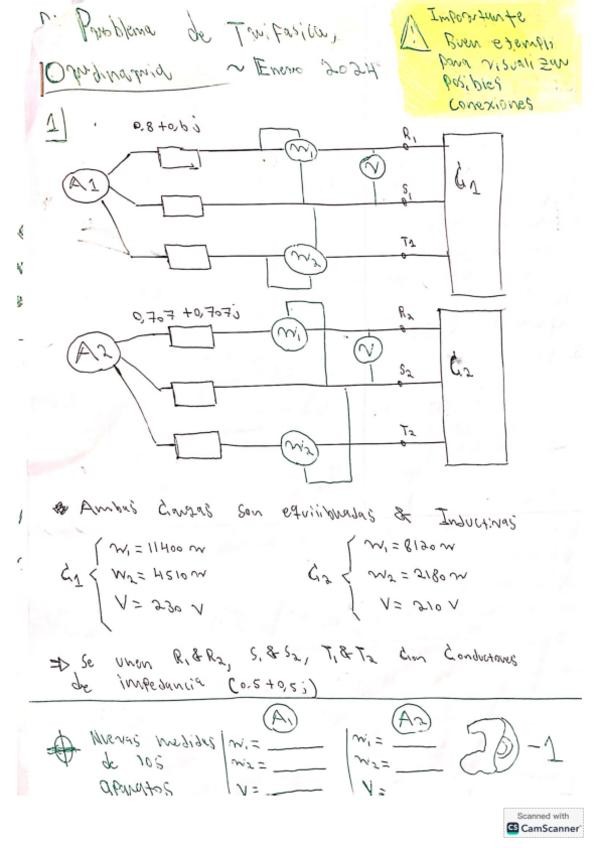 Problema de Trifasica,
Ordinaria ~ Enero 2024
Importante
Buen ejemplo
para visualizar
posibles
conexiones
1]
0,8+0,6j
A1
W1
V
R1
S1
T1
W2
C1
0,707+0,707j
A2
W1
V
R2
S2
T2
W2
C2
* Ambas Cargas son equilibradas & Inductivas
C1 { W1 = 11400 W
W2 = 4510 W
V = 230 V
C2 { W1 = 8120 W
W2 = 2180 W
V = 210 V
⇒ Se unen R1 & R2, S1 & S2, T1 & T2 con Conductores
de impedancia (0.5+0,5j)
Nuevas medidas
de los
aparatos
A1
W1 =
W2 =
V =
A2
W1 =
W2 =
V =
-1
Scanned with
CS CamScanner